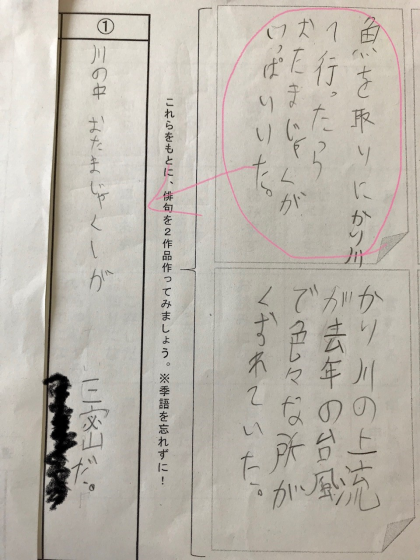 魚を取りにかり川
へ行ったら
おたまじゃくが
いっぱいいた。
かり川の上流
が去年の台風
で色々な所が
くずれていた。
これらをもとに、俳句を２作品作ってみましょう。※季語を忘れずに！
①
川の中 おたまじゃくしが 三密だ。